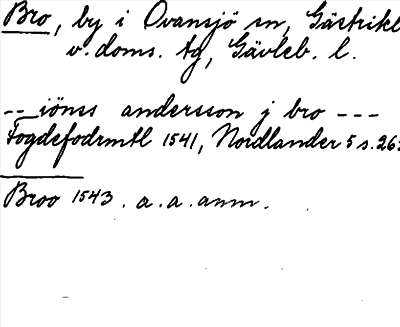 Bro, by i Ovansjö sn, Gästrikl
v. doms. tg, Gävleb. l.
-- iönss andersson j bro ---
Fogdefodrmtl 1541, Nordlander 5 s. 26
Broo 1543. a. a. anm.